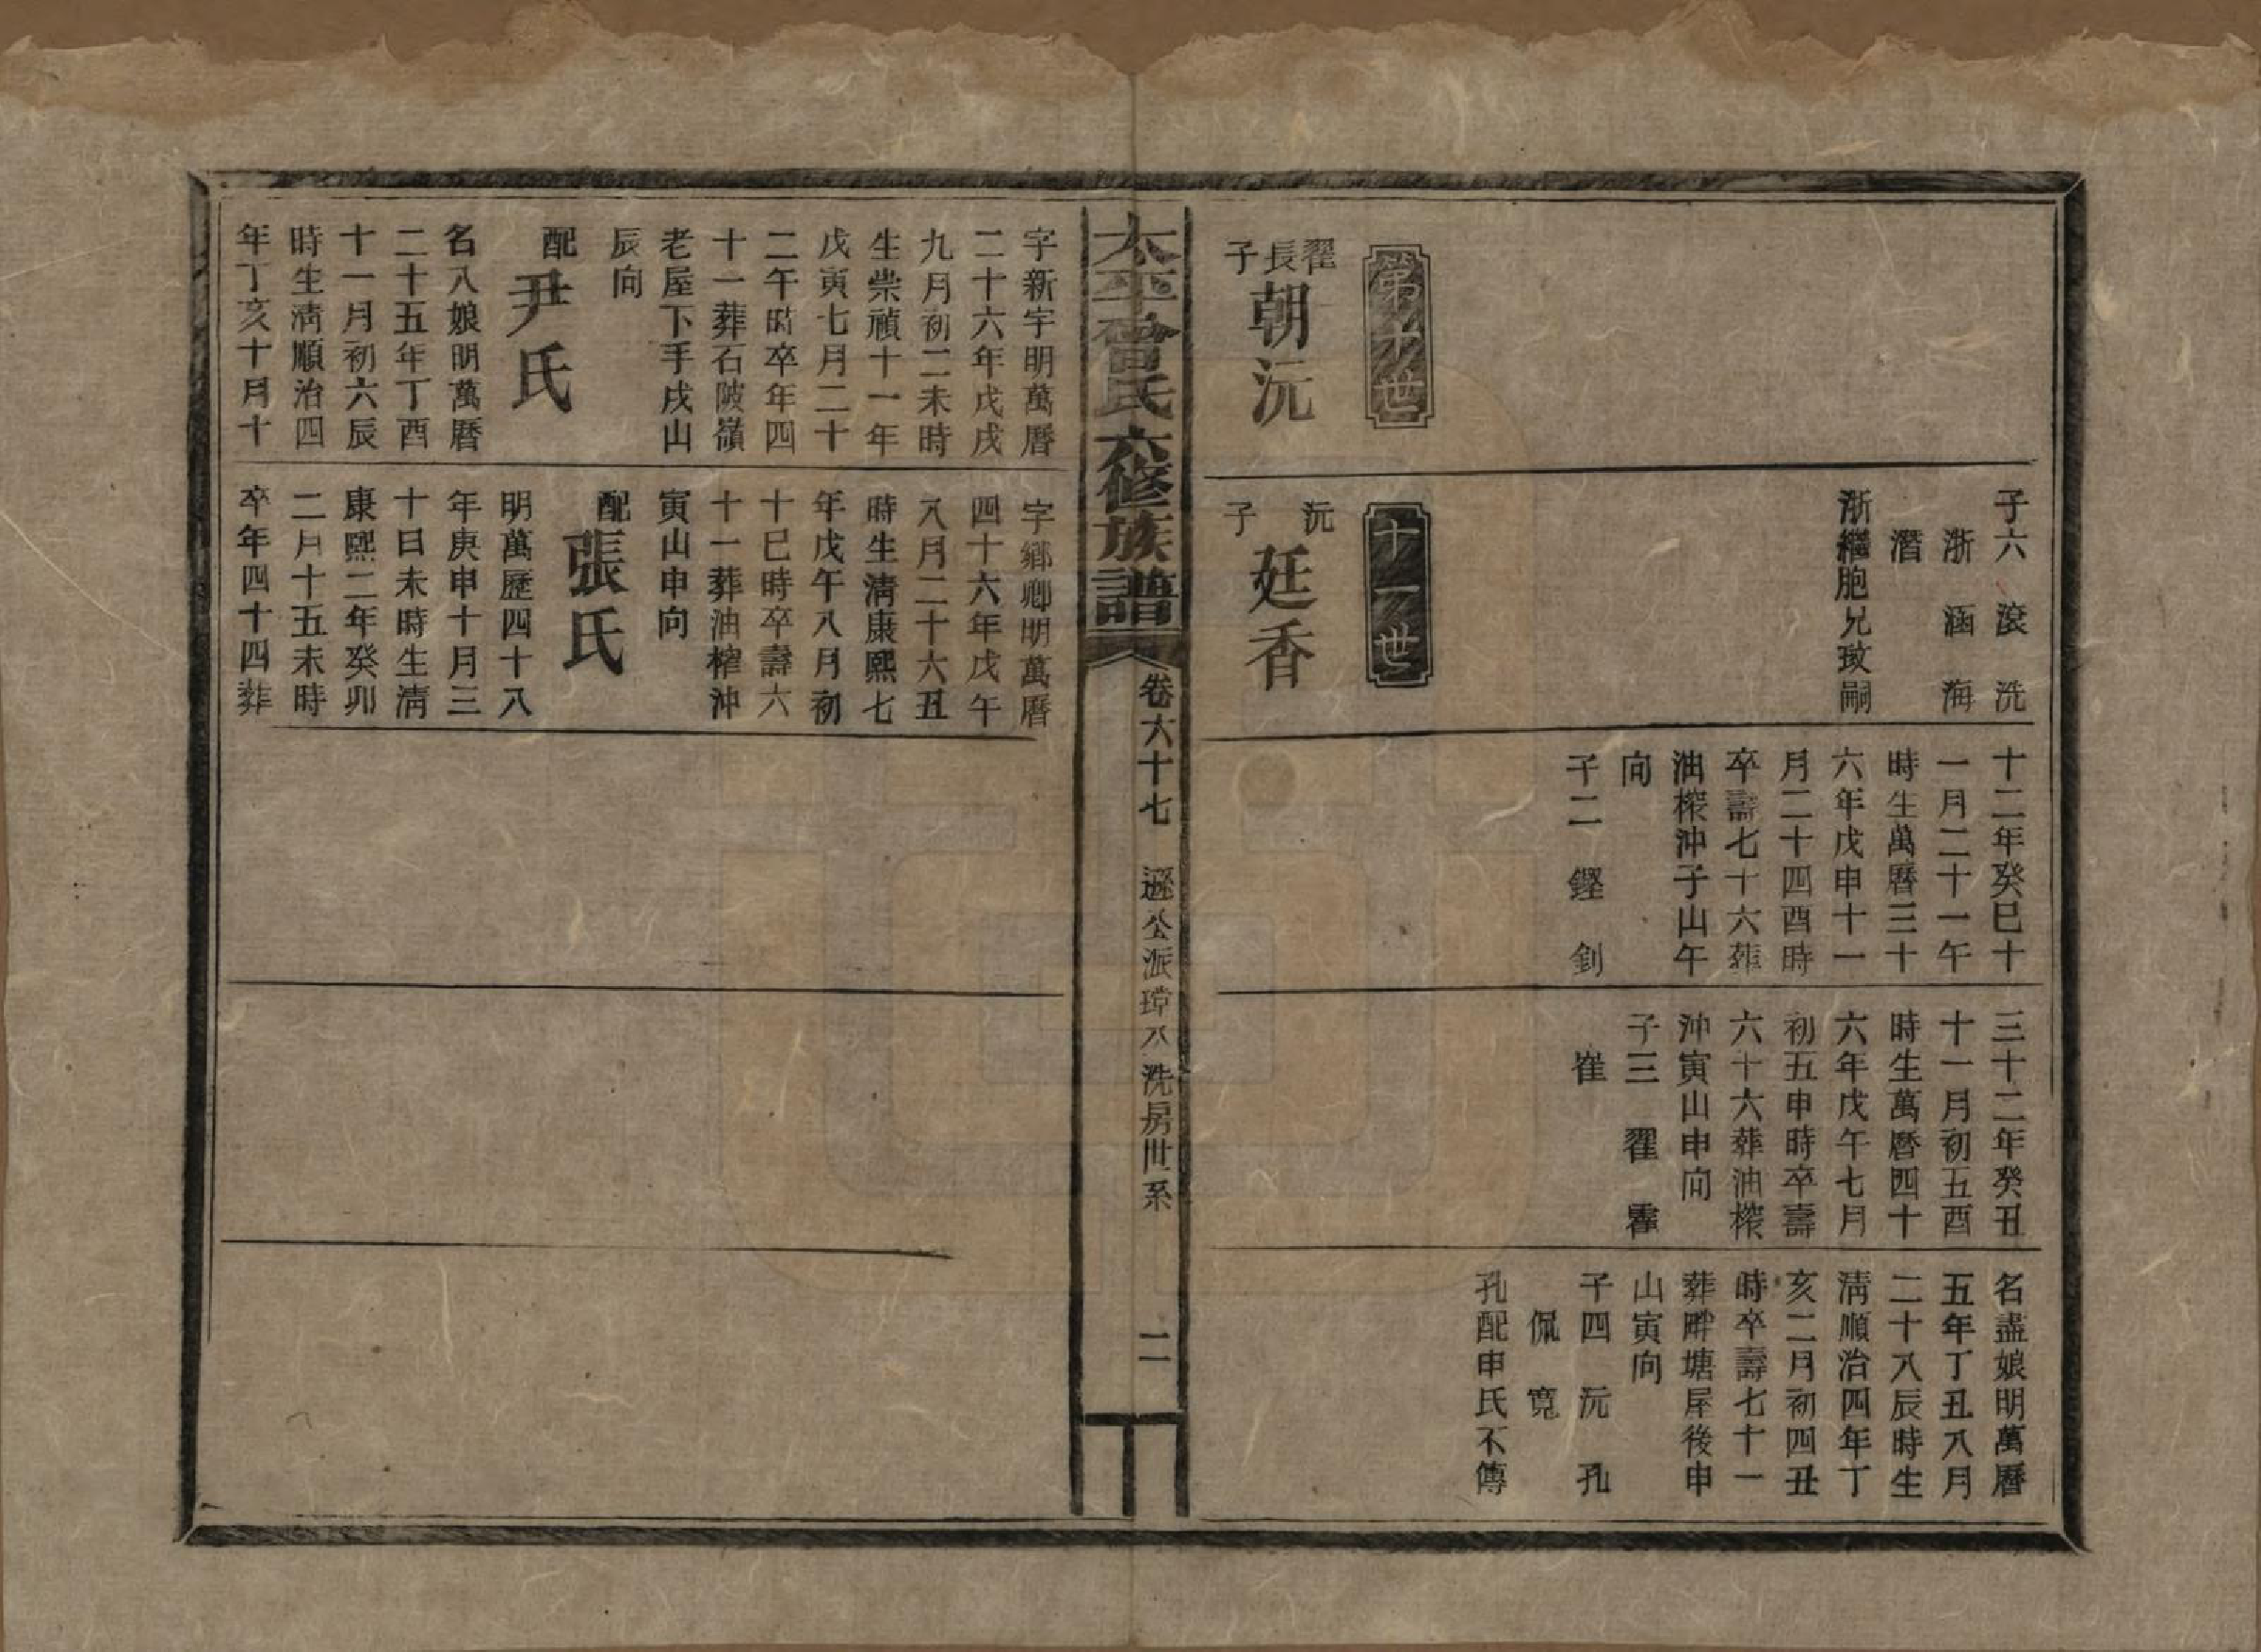 子六　滾　洗
浙　涵　海
潛
浙繼胞兄玫嗣
十二年癸巳十
一月二十一午
時生萬曆三十
六年戊申十一
月二十四酉時
卒壽七十六葬
油榨沖子山午
向
子二　鏗　釗
三十二年癸丑
十一月初五酉
時生萬曆四十
六年戊午七月
初五申時卒壽
六十六葬油榨
沖寅山申向
子三　翟　霍
崔
名盡娘明萬曆
五年丁丑八月
二十八辰時生
清順治四年丁
亥二月初四丑
時卒壽七十一
葬畔塘屋後申
山寅向
子四　沅　孔
侃　寬
孔配申氏不傳
第十世
翟長子
朝沅
十一世
沅子
廷香
太平曾氏六修族譜
卷六十七　遜公派琼八　洗房世系　二
字新宇明萬曆
二十六年戊戌
九月初二未時
生崇禎十一年
戊寅七月二十
二午時卒年四
十一葬石陂嶺
老屋下手戌山
辰向
配尹氏
名八娘明萬曆
二十五年丁酉
十一月初六辰
時生清順治四
年丁亥十月十
字鄉卿明萬曆
四十六年戊午
八月二十六丑
時生清康熙七
年戊午八月初
十巳時卒壽六
十一葬油榨沖
寅山申向
配張氏
明萬歷四十八
年庚申十月三
十日未時生清
康熙二年癸卯
二月十五未時
卒年四十四葬